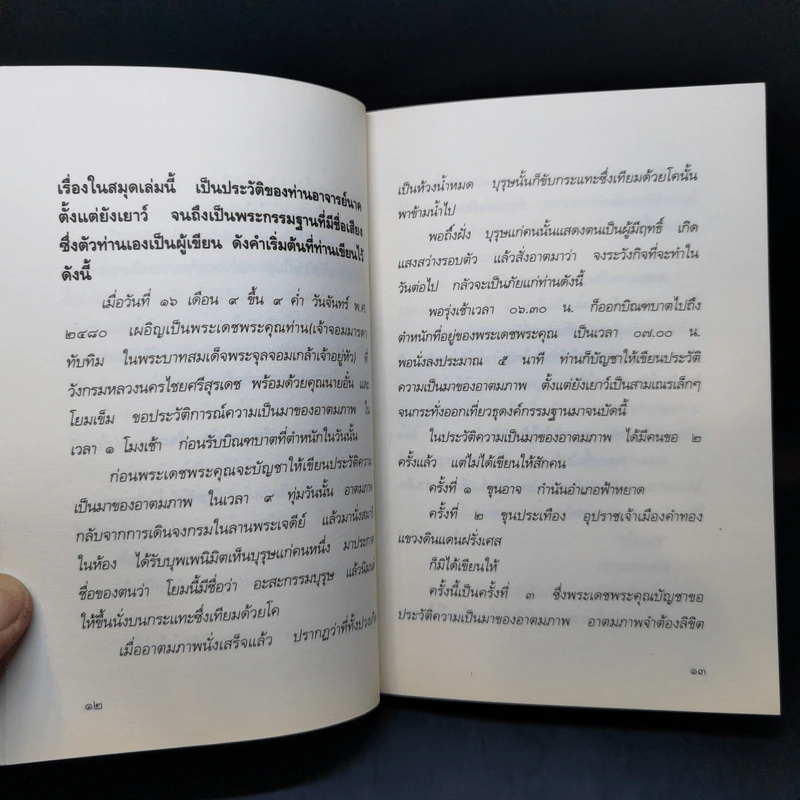 เรื่องในสมุดเล่มนี้ เป็นประวัติของท่านอาจารย์นาค
ตั้งแต่ยังเยาว์ จนถึงเป็นพระกรรมฐานที่มีชื่อเสียง
ซึ่งตัวท่านเองเป็นผู้เขียน ดังคำเริ่มต้นที่ท่านเขียนไว้
ดังนี้
เมื่อวันที่ ๑๖ เดือน ๙ ขึ้น ๙ ค่ำ วันจันทร์ พ.ศ.
๒๔๘๐ เผอิญเป็นพระเดชพระคุณท่าน(เจ้าจอมมารดา
ทับทิม ในพระบาทสมเด็จพระจุลจอมเกล้าเจ้าอยู่หัว) ที่
วังกรมหลวงนครไชยศรีสุรเดช พร้อมด้วยคุณนายอั๋น และ
โยมเข็ม ขอประวัติการณ์ความเป็นมาของอาตมภาพ ใน
เวลา ๑ โมงเช้า ก่อนรับบิณฑบาตที่ตำหนักในวันนั้น
ก่อนพระเดชพระคุณจะบัญชาให้เขียนประวัติความ
เป็นมาของอาตมภาพ ในเวลา ๙ ทุ่มวันนั้น อาตมภาพ
กลับจากการเดินจงกรมในลานพระเจดีย์ แล้วมานั่งสมาธิ
ในห้อง ได้รับบุพเพนิมิตเห็นบุรุษแก่คนหนึ่ง มาประกาศ
ชื่อของตนว่า โยมนี้มีชื่อว่า อะสะกรรมบุรุษ แล้วนิมนต์
ให้ขึ้นนั่งบนกระแทะซึ่งเทียมด้วยโค
เมื่ออาตมภาพนั่งเสร็จแล้ว ปรากฏว่าที่ทั้งปวง
๑๒
เป็นห้วงน้ำหมด บุรุษนั้นก็ขับกระแทะซึ่งเทียมด้วยโคนั้น
พาข้ามน้ำไป
พอถึงฝั่ง บุรุษแก่คนนั้นแสดงตนเป็นผู้มีฤทธิ์ เกิด
แสงสว่างรอบตัว แล้วสั่งอาตมาว่า จงระวังกิจที่จะทำใน
วันต่อไป กลัวจะเป็นภัยแก่ท่านดังนี้
พอรุ่งเช้าเวลา ๐๖.๓๐ น. ก็ออกบิณฑบาตไปถึง
ตำหนักที่อยู่ของพระเดชพระคุณ เป็นเวลา ๐๗.๐๐ น.
พอนั่งลงประมาณ ๕ นาที ท่านก็บัญชาให้เขียนประวัติ
ความเป็นมาของอาตมภาพ ตั้งแต่ยังเยาว์เป็นสามเณรเล็กๆ
จนกระทั่งออกเที่ยวธุดงค์กรรมฐานมาจนบัดนี้
ในประวัติความเป็นมาของอาตมภาพ ได้มีคนขอ ๒
ครั้งแล้ว แต่ไม่ได้เขียนให้สักคน
ครั้งที่ ๑ ขุนอาจ กำนันอำเภอฟ้าหยาด
ครั้งที่ ๒ ขุนประเทือง อุปราชเจ้าเมืองคำทอง
แขวงดินแดนฝรั่งเศส
ก็มิได้เขียนให้
ครั้งนี้เป็นครั้งที่ ๓ ซึ่งพระเดชพระคุณบัญชาขอ
ประวัติความเป็นมาของอาตมภาพ อาตมภาพจำต้องลิขิต
๑๓